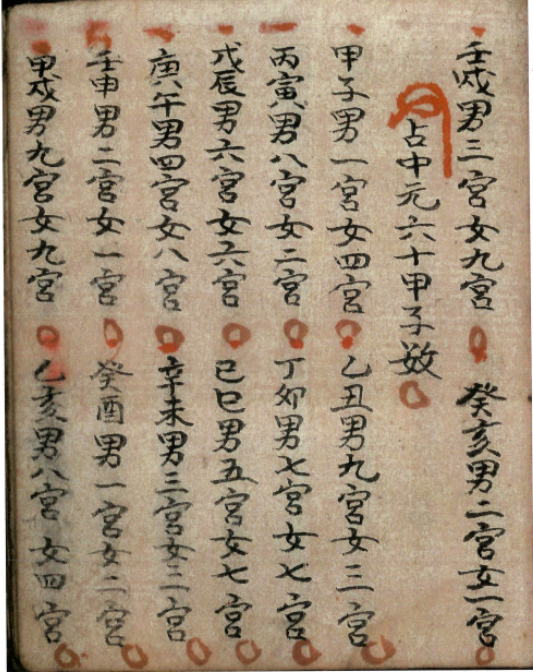 壬戌男三宮女九宮 癸亥男二宮女一宮
占中元六十甲子数
甲子男一宮女四宮 乙丑男九宮女三宮
丙寅男八宮女二宮 丁卯男七宮女七宮
戊辰男六宮女六宮 己巳男五宮女七宮
庚午男四宮女八宮 辛未男三宮女三宮
壬申男二宮女一宮 癸酉男一宮女二宮
甲戌男九宮女九宮 乙亥男八宮女四宮